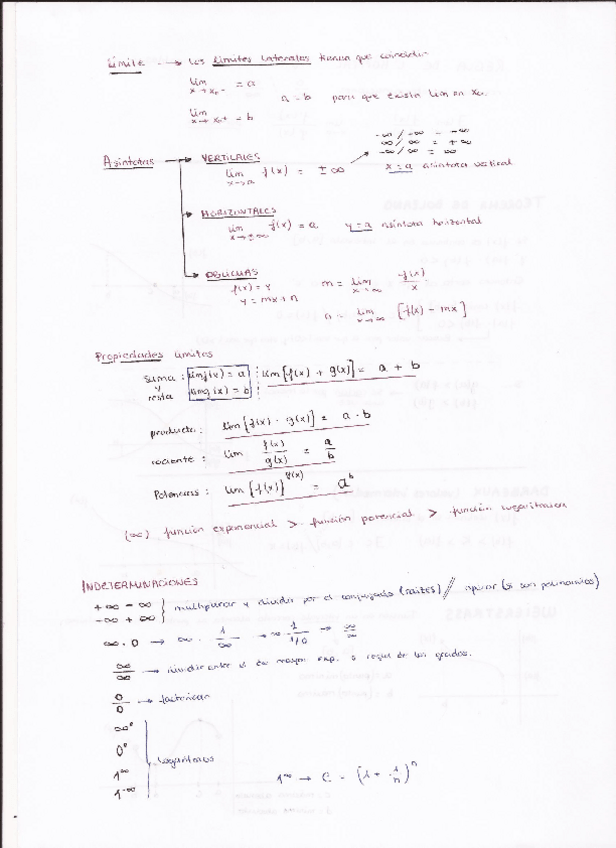 Límite → Los límites laterales tienen que coincidir
lim x→x₀⁻ = a
a = b para que exista lim en x₀.
lim x→x₀⁺ = b
-∞/-∞ = -∞
∞/∞ = +∞
-∞/∞ = ∞
Asíntotas → VERTICALES
lim x→a f(x) = ±∞ x = a asíntota vertical
HORIZONTALES
lim x→±∞ f(x) = a y = a asíntota horizontal
OBLICUAS
f(x) = y m = lim x→∞ f(x)/x
y = mx + n
n = lim x→∞ [f(x) - mx]
Propiedades límites
suma y resta : lim f(x) = a lim g(x) = b lim [f(x) + g(x)] = a + b
producto: lim [f(x) · g(x)] = a · b
cociente: lim f(x)/g(x) = a/b
Potencias: lim [f(x)]^g(x) = a^b
(∞) función exponencial > función potencial > función logarítmica
INDETERMINACIONES
+∞ - ∞
-∞ + ∞ } multiplicar y dividir por el conjugado (raíces) // operar (si son polinomios)
∞ · 0 → ∞ · 1/∞ → ∞ · 1/1/0 → ∞/∞
∞/∞ → dividir entre el de mayor exp. o de los grados.
0/0 → factorizar
∞⁰
0⁰
logaritmos
1^∞
1^∞ → e = (1 + 1/n)^n
1^-∞